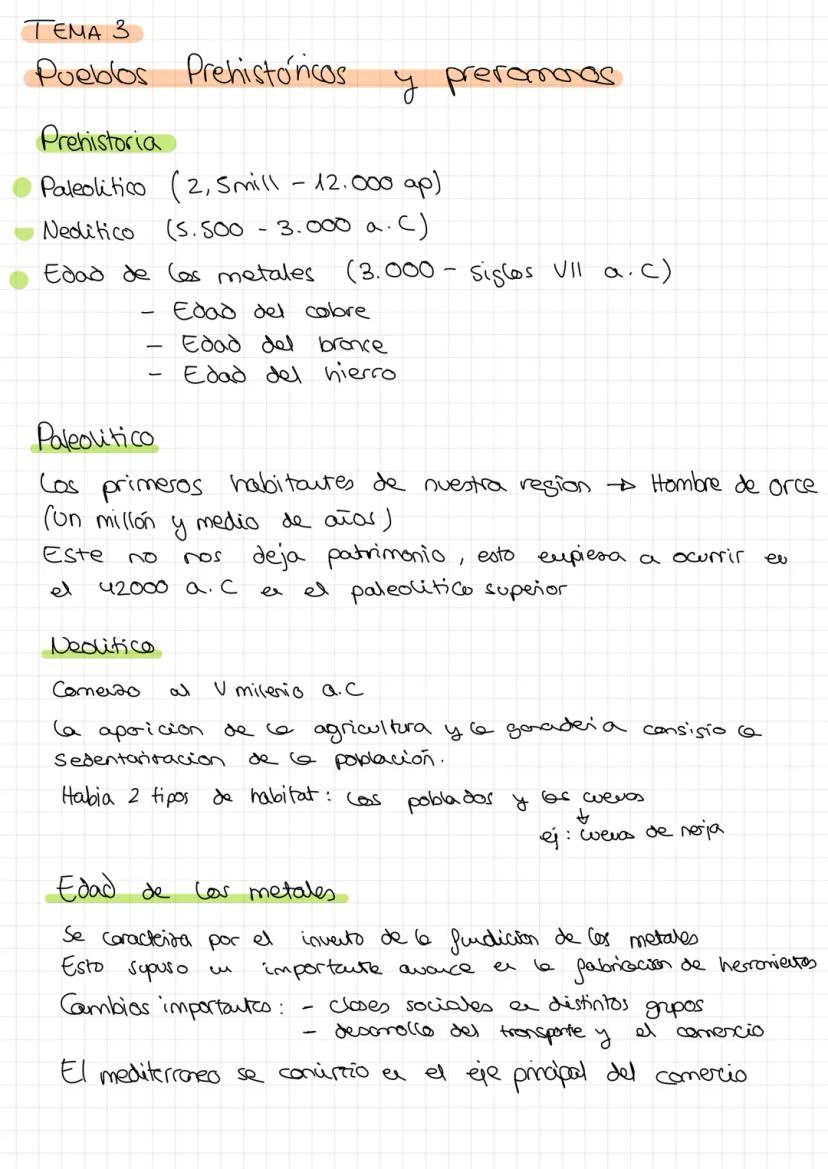 TEMA 3
Pueblos Prehistóricos y prerromanos
Prehistoria
Paleolitico (2,5mill - 12.000 ap)
Neolitico (5.500 - 3.000 a.C)
Edad de los metales (3.000 - siglos VII a.C)
- Edad del cobre
- Edad del bronce
- Edad del hierro
Paleolitico
Los primeros habitantes de nuestra region → Hombre de orce
(Un millón y medio de años)
Este no nos deja patrimonio, esto empieza a ocurrir en
el 42000 a.C en el paleolitico superior
Neolitico
Comenzo al V milenio a.C
La aparicion de la agricultura y la ganaderia consisio la
sedentarizacion de la poblaciōn.
Habia 2 tipos de habitat: los poblados y las cuevas
↓
ej: cueva de nerja
Edad de los metales
Se caracteriza por el invento de la fundicion de los metales
Esto supuso un importante avance en la fabricacion de herramientas
Cambios importantes: - clases sociales en distintos grupos
- desarrollo del transporte y el comercio
El mediterraneo se convirtio en el eje principal del comercio